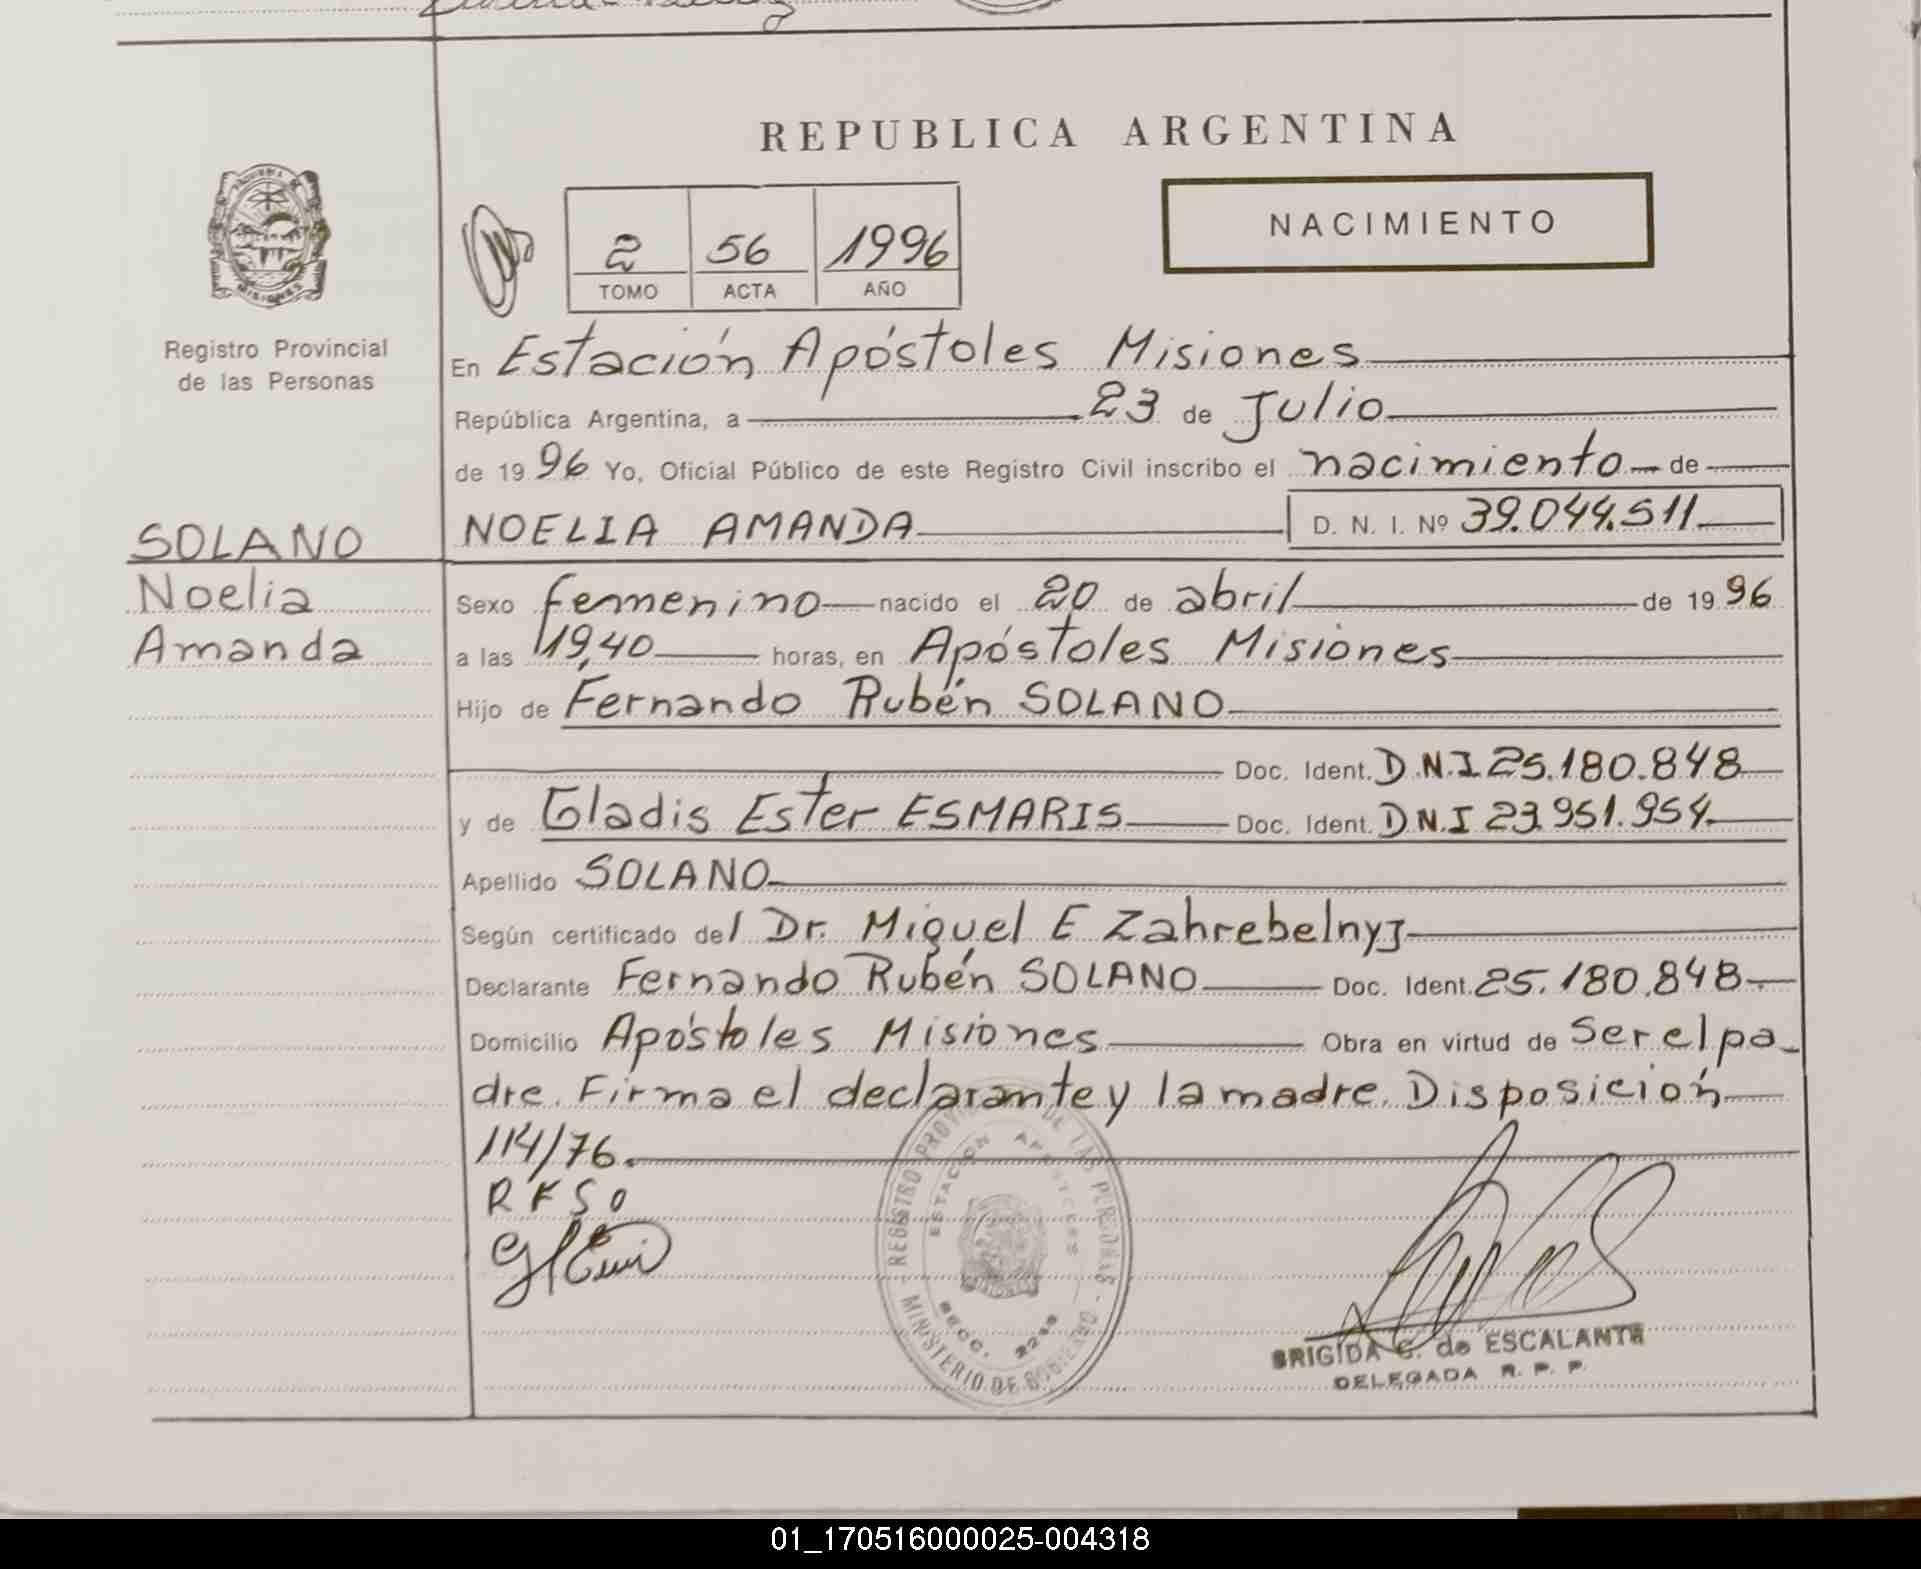 REPUBLICA ARGENTINA
NACIMIENTO
2 56 1996
TOMO ACTA AÑO
PROVINCIA DE MISIONES
Registro Provincial
de las Personas
En Estación Apóstoles Misiones
República Argentina, a 23 de Julio
de 1996 Yo, Oficial Público de este Registro Civil inscribo el nacimiento de
SOLANO
Noelia
Amanda
NOELIA AMANDA D. N. I. Nº 39.044.511
Sexo femenino nacido el 20 de abril de 1996
a las 19,40 horas, en Apóstoles Misiones
Hijo de Fernando Rubén SOLANO
Doc. Ident. D.N.I 25.180.848
y de Gladis Ester ESMARIS Doc. Ident. D.N.I 23.951.954
Apellido SOLANO
Según certificado del Dr. Miguel E Zahrebelnyj
Declarante Fernando Rubén SOLANO Doc. Ident. 25.180.848
Domicilio Apóstoles Misiones Obra en virtud de Ser el pa-
dre. Firma el declarante y la madre. Disposición
114/76.
R F S O
REGISTRO PROVINCIAL DE LAS PERSONAS - MINISTERIO DE GOBIERNO -
ESTACION APOSTOLES
SECC. 2249
BRIGIDA G. de ESCALANTE
DELEGADA R. P. P.
01_170516000025-004318